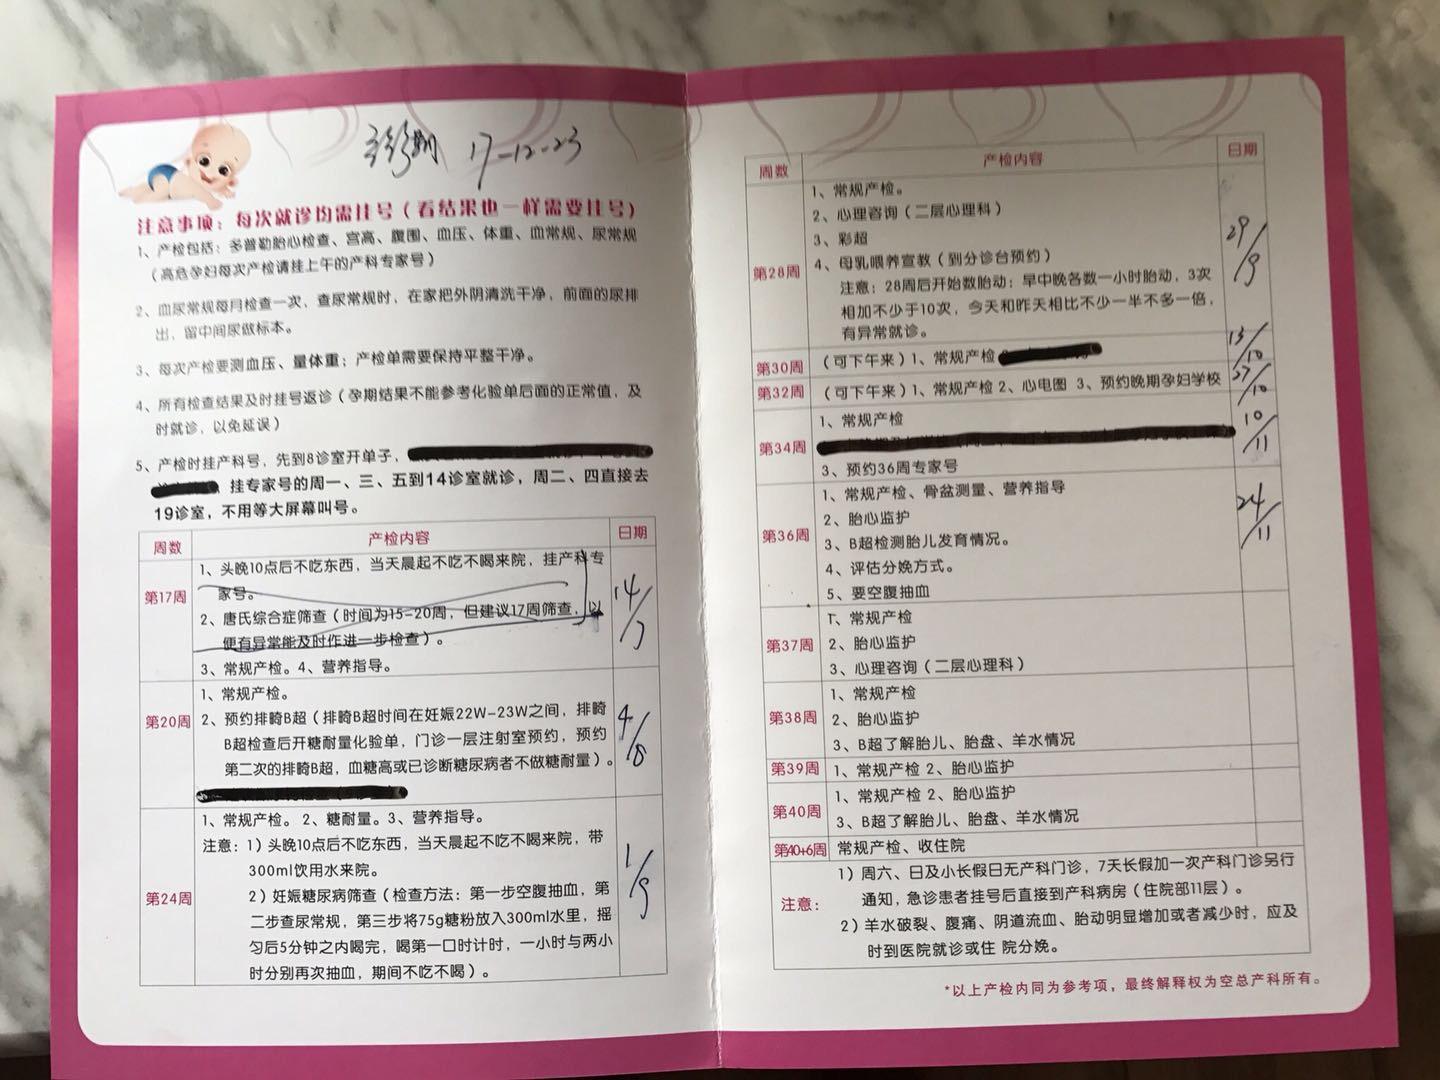 预产期 17-12-23
注意事项：每次就诊均需挂号（看结果也一样需要挂号）
1、产检包括：多普勒胎心检查、宫高、腹围、血压、体重、血常规、尿常规
（高危孕妇每次产检请挂上午的产科专家号）
2、血尿常规每月检查一次，查尿常规时，在家把外阴清洗干净，前面的尿排
出，留中间尿做标本。
3、每次产检要测血压、量体重；产检单需要保持平整干净。
4、所有检查结果及时挂号返诊（孕期结果不能参考化验单后面的正常值，及
时就诊，以免延误）
5、产检时挂产科号，先到8诊室开单子，
挂专家号的周一、三、五到14诊室就诊，周二、四直接去
19诊室，不用等大屏幕叫号。
周数 产检内容 日期
第17周
1、头晚10点后不吃东西，当天晨起不吃不喝来院，挂产科专
家号。
2、唐氏综合症筛查（时间为15-20周，但建议17周筛查，以
便有异常能及时作进一步检查）。
3、常规产检。4、营养指导。
14/7
第20周
1、常规产检。
2、预约排畸B超（排畸B超时间在妊娠22W-23W之间，排畸
B超检查后开糖耐量化验单，门诊一层注射室预约，预约
第二次的排畸B超，血糖高或已诊断糖尿病者不做糖耐量）。
4/8
第24周
1、常规产检。 2、糖耐量。3、营养指导。
注意：1）头晚10点后不吃东西，当天晨起不吃不喝来院，带
300ml饮用水来院。
2）妊娠糖尿病筛查（检查方法：第一步空腹抽血，第
二步查尿常规，第三步将75g糖粉放入300ml水里，摇
匀后5分钟之内喝完，喝第一口时计时，一小时与两小
时分别再次抽血，期间不吃不喝）。
1/9
周数 产检内容 日期
第28周
1、常规产检。
2、心理咨询（二层心理科）
3、彩超
4、母乳喂养宣教（到分诊台预约）
注意：28周后开始数胎动：早中晚各数一小时胎动，3次
相加不少于10次，今天和昨天相比不少一半不多一倍，
有异常就诊。
29/9
第30周 （可下午来）1、常规产检 13/10
第32周 （可下午来）1、常规产检 2、心电图 3、预约晚期孕妇学校 27/10
第34周
1、常规产检
3、预约36周专家号
10/11
第36周
1、常规产检、骨盆测量、营养指导
2、胎心监护
3、B超检测胎儿发育情况。
4、评估分娩方式。
5、要空腹抽血
24/11
第37周
1、常规产检
2、胎心监护
3、心理咨询（二层心理科）
第38周
1、常规产检
2、胎心监护
3、B超了解胎儿、胎盘、羊水情况
第39周 1、常规产检 2、胎心监护
第40周
1、常规产检 2、胎心监护
3、B超了解胎儿、胎盘、羊水情况
第40+6周 常规产检、收住院
注意：
1）周六、日及小长假日无产科门诊，7天长假加一次产科门诊另行
通知，急诊患者挂号后直接到产科病房（住院部11层）。
2）羊水破裂、腹痛、阴道流血、胎动明显增加或者减少时，应及
时到医院就诊或住 院分娩。
*以上产检内同为参考项，最终解释权为空总产科所有。